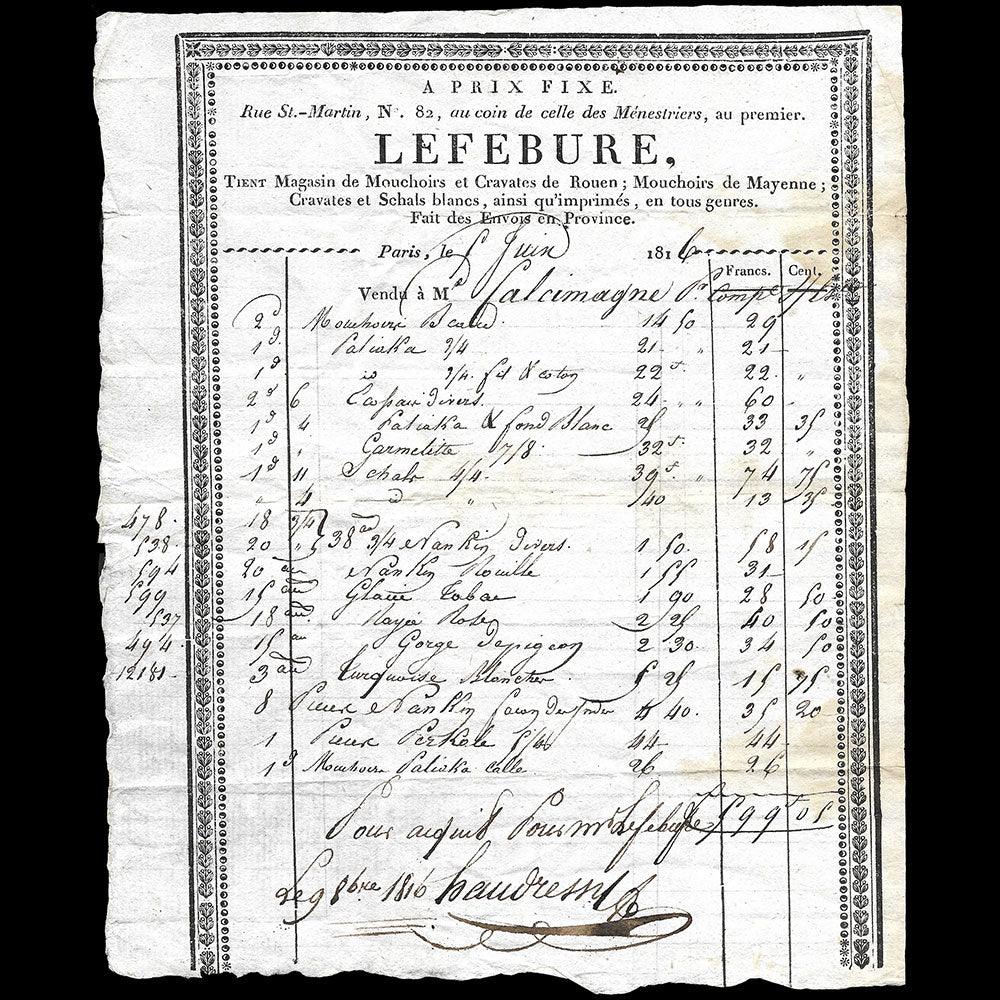 A PRIX FIXE.
Rue St.-Martin, N°. 82, au coin de celle des Ménestriers, au premier.
LEFEBURE,
TIENT Magasin de Mouchoirs et Cravates de Rouen; Mouchoirs de Mayenne;
Cravates et Schals blancs, ainsi qu'imprimés, en tous genres.
Fait des Envois en Province.
Paris, le 5 Juin 1816
Francs. Cent.
Vendu à Mr Salcimagne Pr Compte
2d Mouchoirs 14 50 29
1d Paliaka 3/4 21 " 21
1d do 3/4 fil & coton 22 " 22 "
2d 6 divers 24 " 60
1d 4 Paliaka & fond Blanc 25 33 35
1d " Carmelitte 7/8 32 32 "
1d 11 Schals 4/4 39 " 74 75
" 4 do " /40 13 35
478 18 3/4
538 20 " 38 au 3/4 Nankin divers 1 50 58 15
594 20 au Nankin Rouille 1 55 31
599 15 au Tabac 1 90 28 50
537 18 au Rose 2 25 40 50
494 15 au Gorge de pigeon 2 30 34 50
12181 3 au turquoise Blancher 5 25 15 75
8 Pieces Nankin façon des Indes 4 40 35 20
1 Piece Perkale 5/4 44 44
1d Mouchoirs Paliaka 26 26
Pour acquit Pour mr Lefebure 599 05
Le 9 8bre 1816